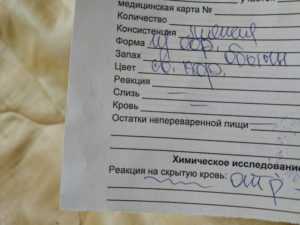 медицинская карта №
Количество
Консистенция
Форма
Запах
Цвет св. кор.
Реакция
Слизь
Кровь
Остатки непереваренной пищи
Химическое исследование
Реакция на скрытую кровь: отр